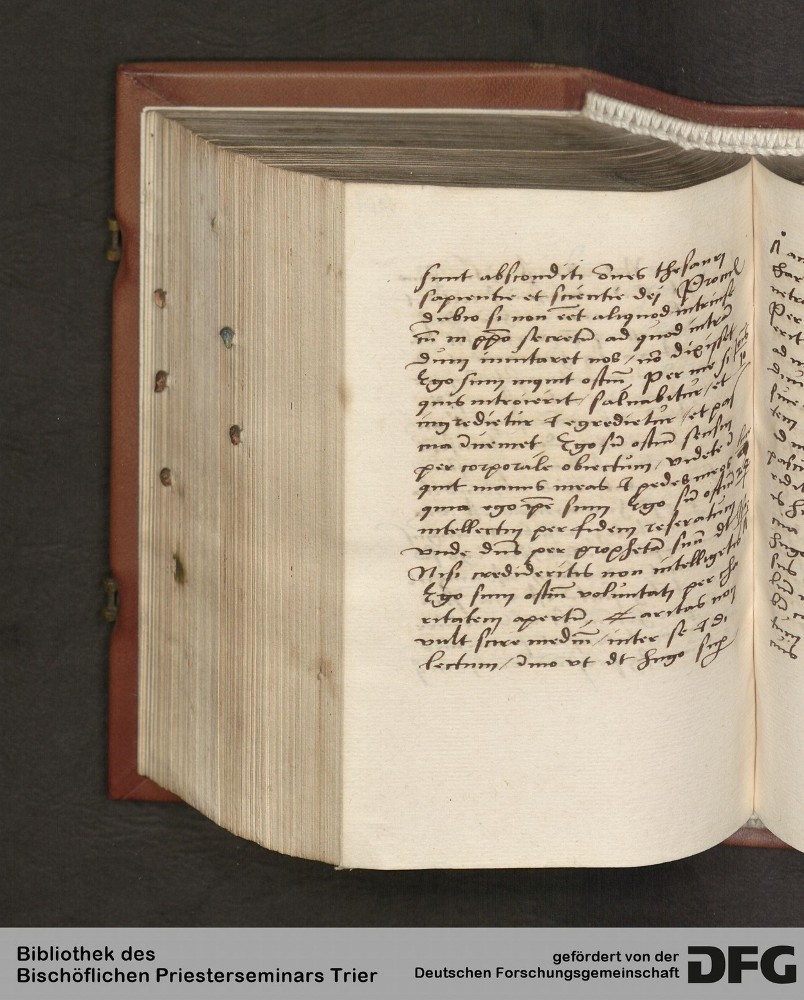 sunt absconditi oẽs thesauri
sapientie et scientie dei Procul
dubio si non eēt aliquod intrinse
cū in ppõ secretū ad quod intrā
dum inuitaret nos / nõ dixisset
Ego sum inquit ostiū. Per me si
quis introierit / saluabitur / et
ingredietur & egredietur / et pas
cua inueniet. Ego sū ostiū
per corporale obiectum / videte
quit manus meas & pedes meos
quia ego ipẽ sum Ego sū ostiū
intellectui per fidem reseratum
vnde dñs per prophetā suū dt
Nisi credideritis non intelligetis
Ego sum ostiū voluntati per cha
ritatem apertū, Caritas non
vult scire mediū / inter se & di
lectum / imo vt dt hugo sup
Bibliothek des
Bischöflichen Priesterseminars Trier
gefördert von der
Deutschen Forschungsgemeinschaft
DFG